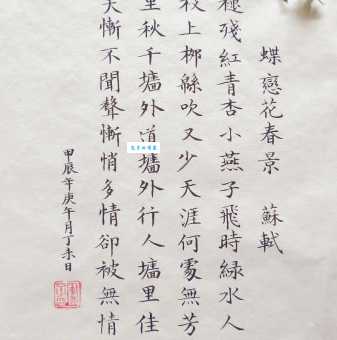 蝶戀花春景 蘇軾
殘紅青杏小燕子飛時綠水人
枝上柳緜吹又少天涯何處無芳
里秋千墻外道墻外行人墻里佳
笑漸不聞聲漸悄多情卻被無情
甲辰年庚午月丁未日